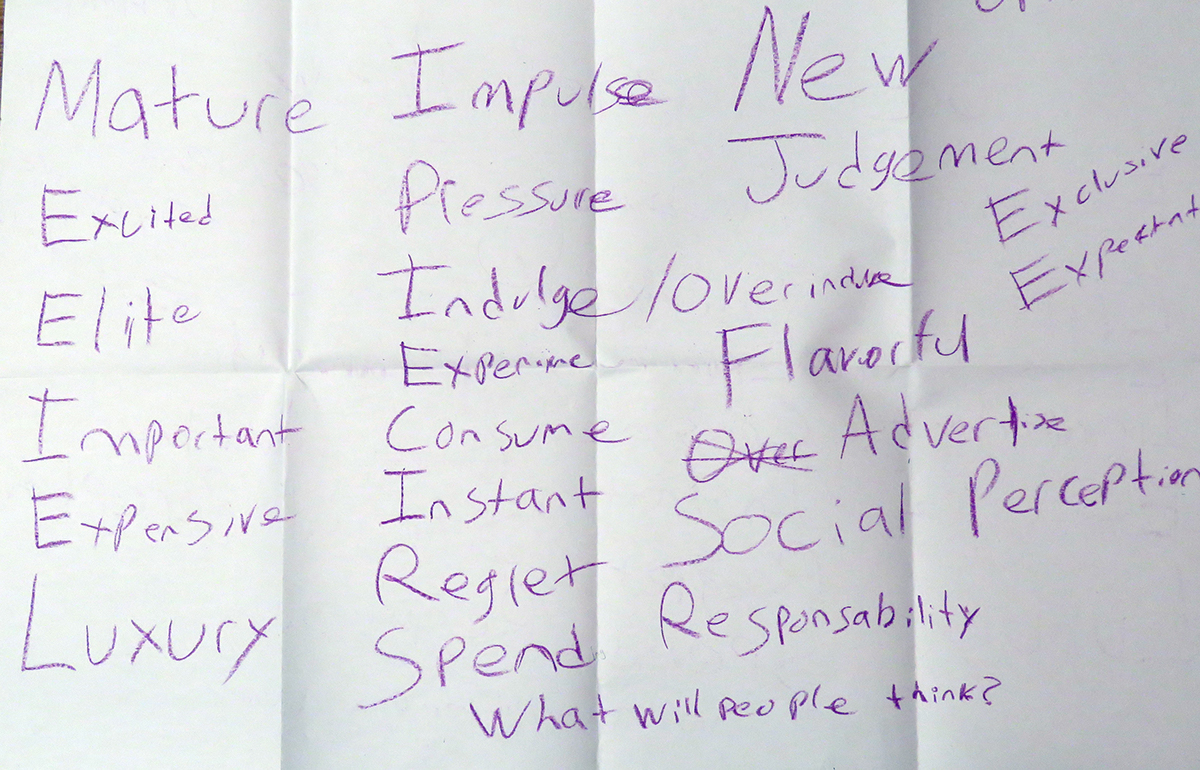 Mature Impulse New
Excited Pressure Judgement Exclusive
Elite Indulge/Over indulge Expectant
Important Flavorful
Expensive Consume Over Advertize
Luxury Instant Social Perception
Regret Responsability
Spend
What will people think?